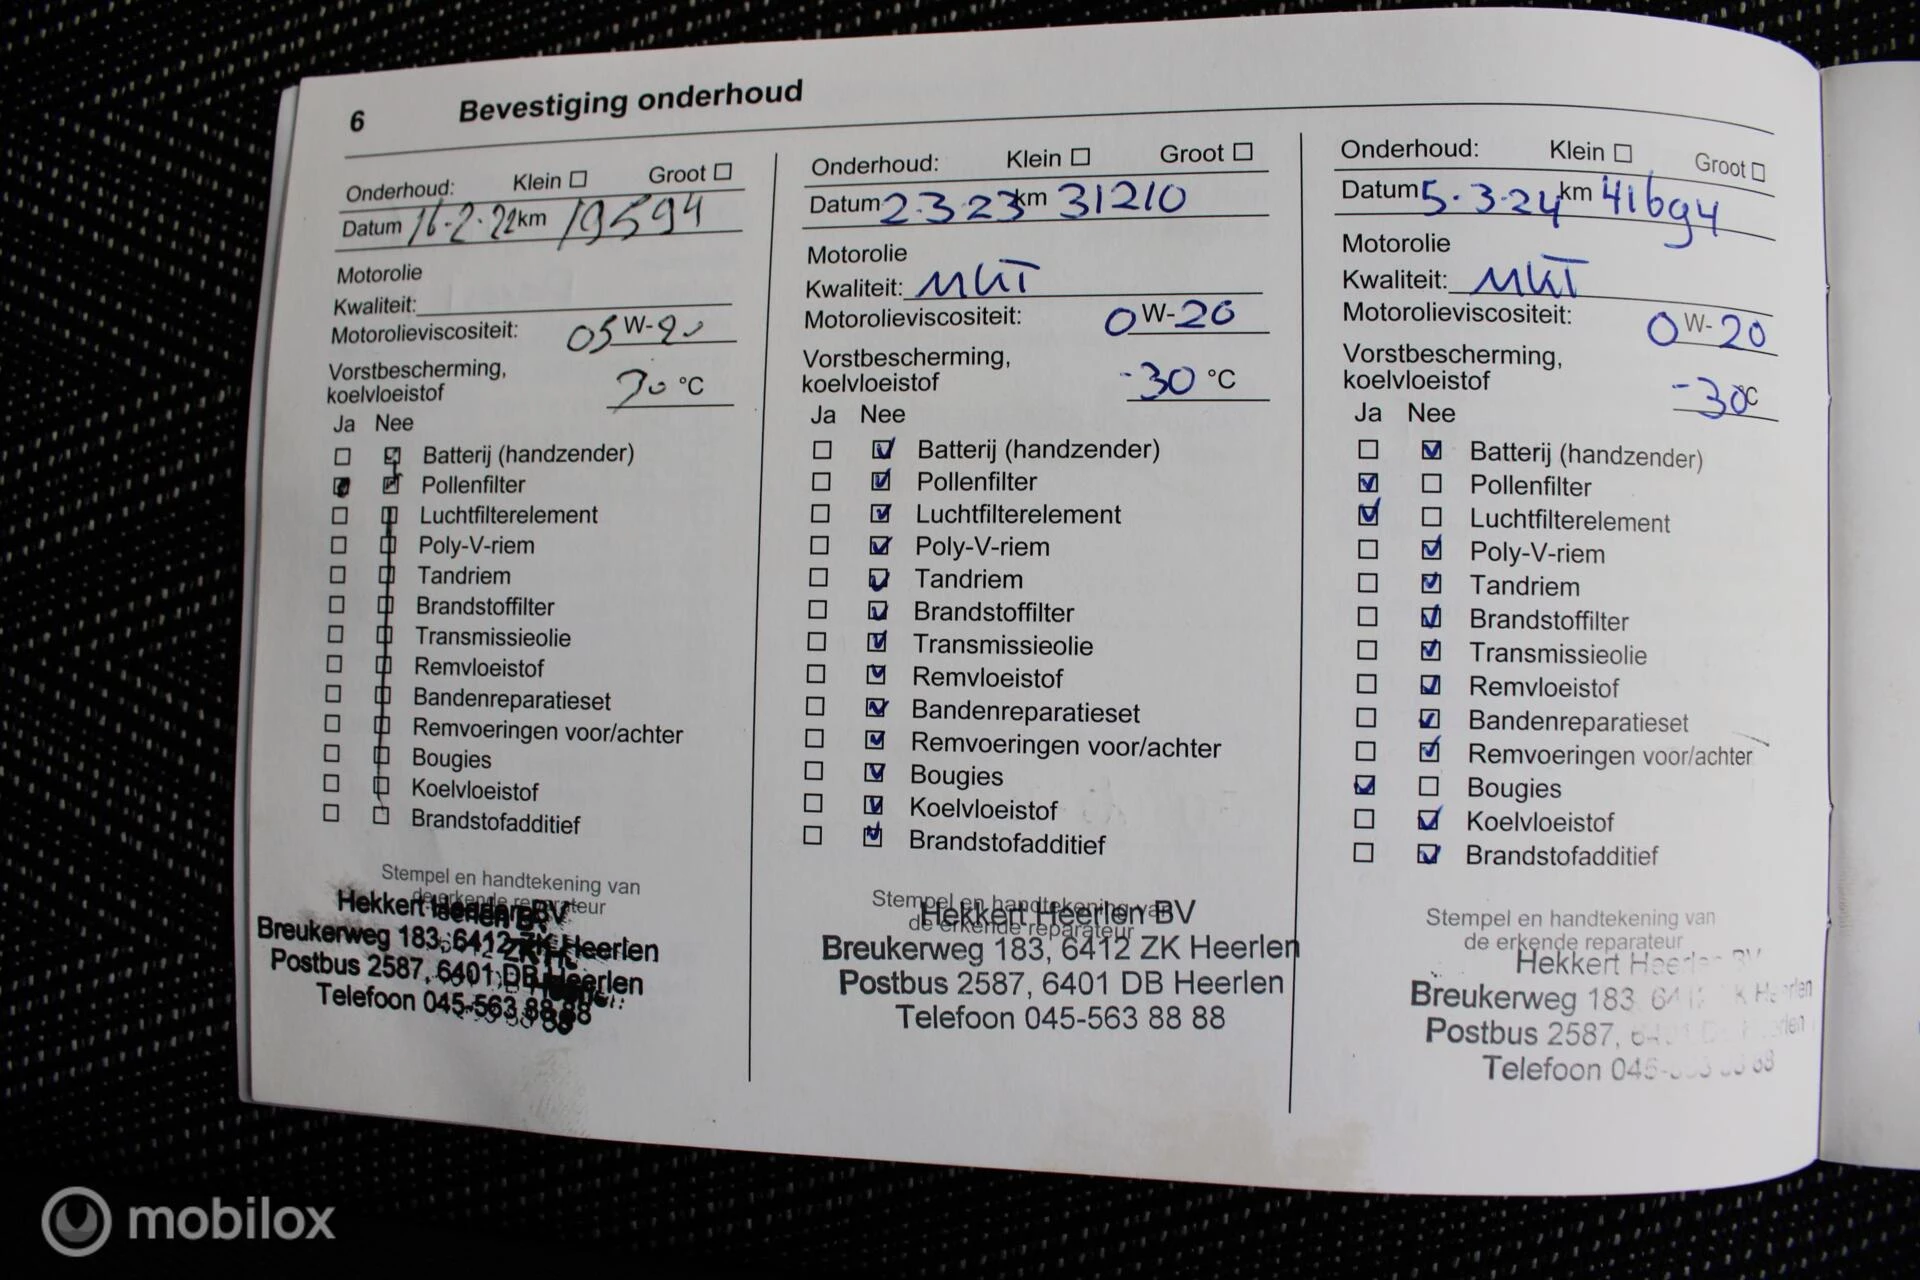 6 Bevestiging onderhoud
Onderhoud: Klein Groot
Datum 16-2-22 km 19594
Motorolie
Kwaliteit:
Motorolieviscositeit: 05 W-20
Vorstbescherming,
koelvloeistof 30 °C
Ja Nee
Batterij (handzender)
Pollenfilter
Luchtfilterelement
Poly-V-riem
Tandriem
Brandstoffilter
Transmissieolie
Remvloeistof
Bandenreparatieset
Remvoeringen voor/achter
Bougies
Koelvloeistof
Brandstofadditief
Stempel en handtekening van
de erkende reparateur
Hekkert Heerlen BV
Breukerweg 183, 6412 ZK Heerlen
Postbus 2587, 6401 DB Heerlen
Telefoon 045-563 88 88
Onderhoud: Klein Groot
Datum 2-3-23 km 31210
Motorolie
Kwaliteit: MKT
Motorolieviscositeit: 0 W-20
Vorstbescherming,
koelvloeistof -30 °C
Ja Nee
Batterij (handzender)
Pollenfilter
Luchtfilterelement
Poly-V-riem
Tandriem
Brandstoffilter
Transmissieolie
Remvloeistof
Bandenreparatieset
Remvoeringen voor/achter
Bougies
Koelvloeistof
Brandstofadditief
Stempel en handtekening van
de erkende reparateur
Hekkert Heerlen BV
Breukerweg 183, 6412 ZK Heerlen
Postbus 2587, 6401 DB Heerlen
Telefoon 045-563 88 88
Onderhoud: Klein Groot
Datum 5-3-24 km 41694
Motorolie
Kwaliteit: MKT
Motorolieviscositeit: 0 W-20
Vorstbescherming,
koelvloeistof -30 °C
Ja Nee
Batterij (handzender)
Pollenfilter
Luchtfilterelement
Poly-V-riem
Tandriem
Brandstoffilter
Transmissieolie
Remvloeistof
Bandenreparatieset
Remvoeringen voor/achter
Bougies
Koelvloeistof
Brandstofadditief
Stempel en handtekening van
de erkende reparateur
Hekkert Heerlen BV
Breukerweg 183, 6412 ZK Heerlen
Postbus 2587, 6401 DB Heerlen
Telefoon 045-563 88 88
mobilox